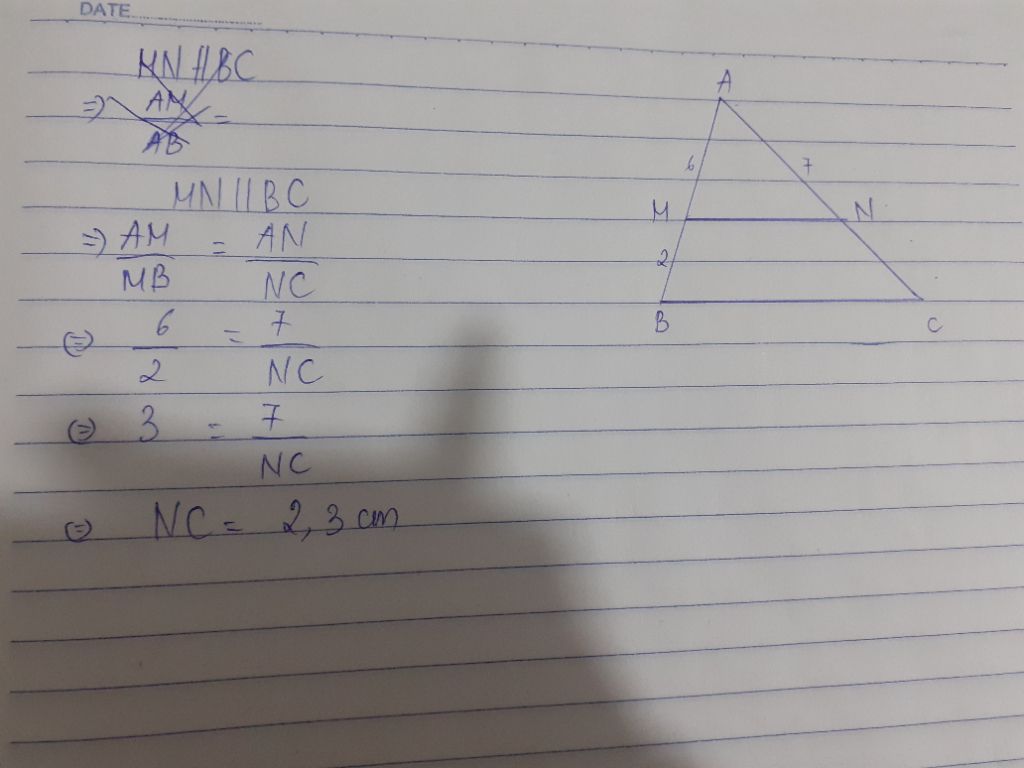 DATE
MN // BC
=> AM/AB =
MN // BC
=> AM/MB = AN/NC
<=> 6/2 = 7/NC
<=> 3 = 7/NC
<=> NC = 2,3 cm
A
6 7
M N
2
B C